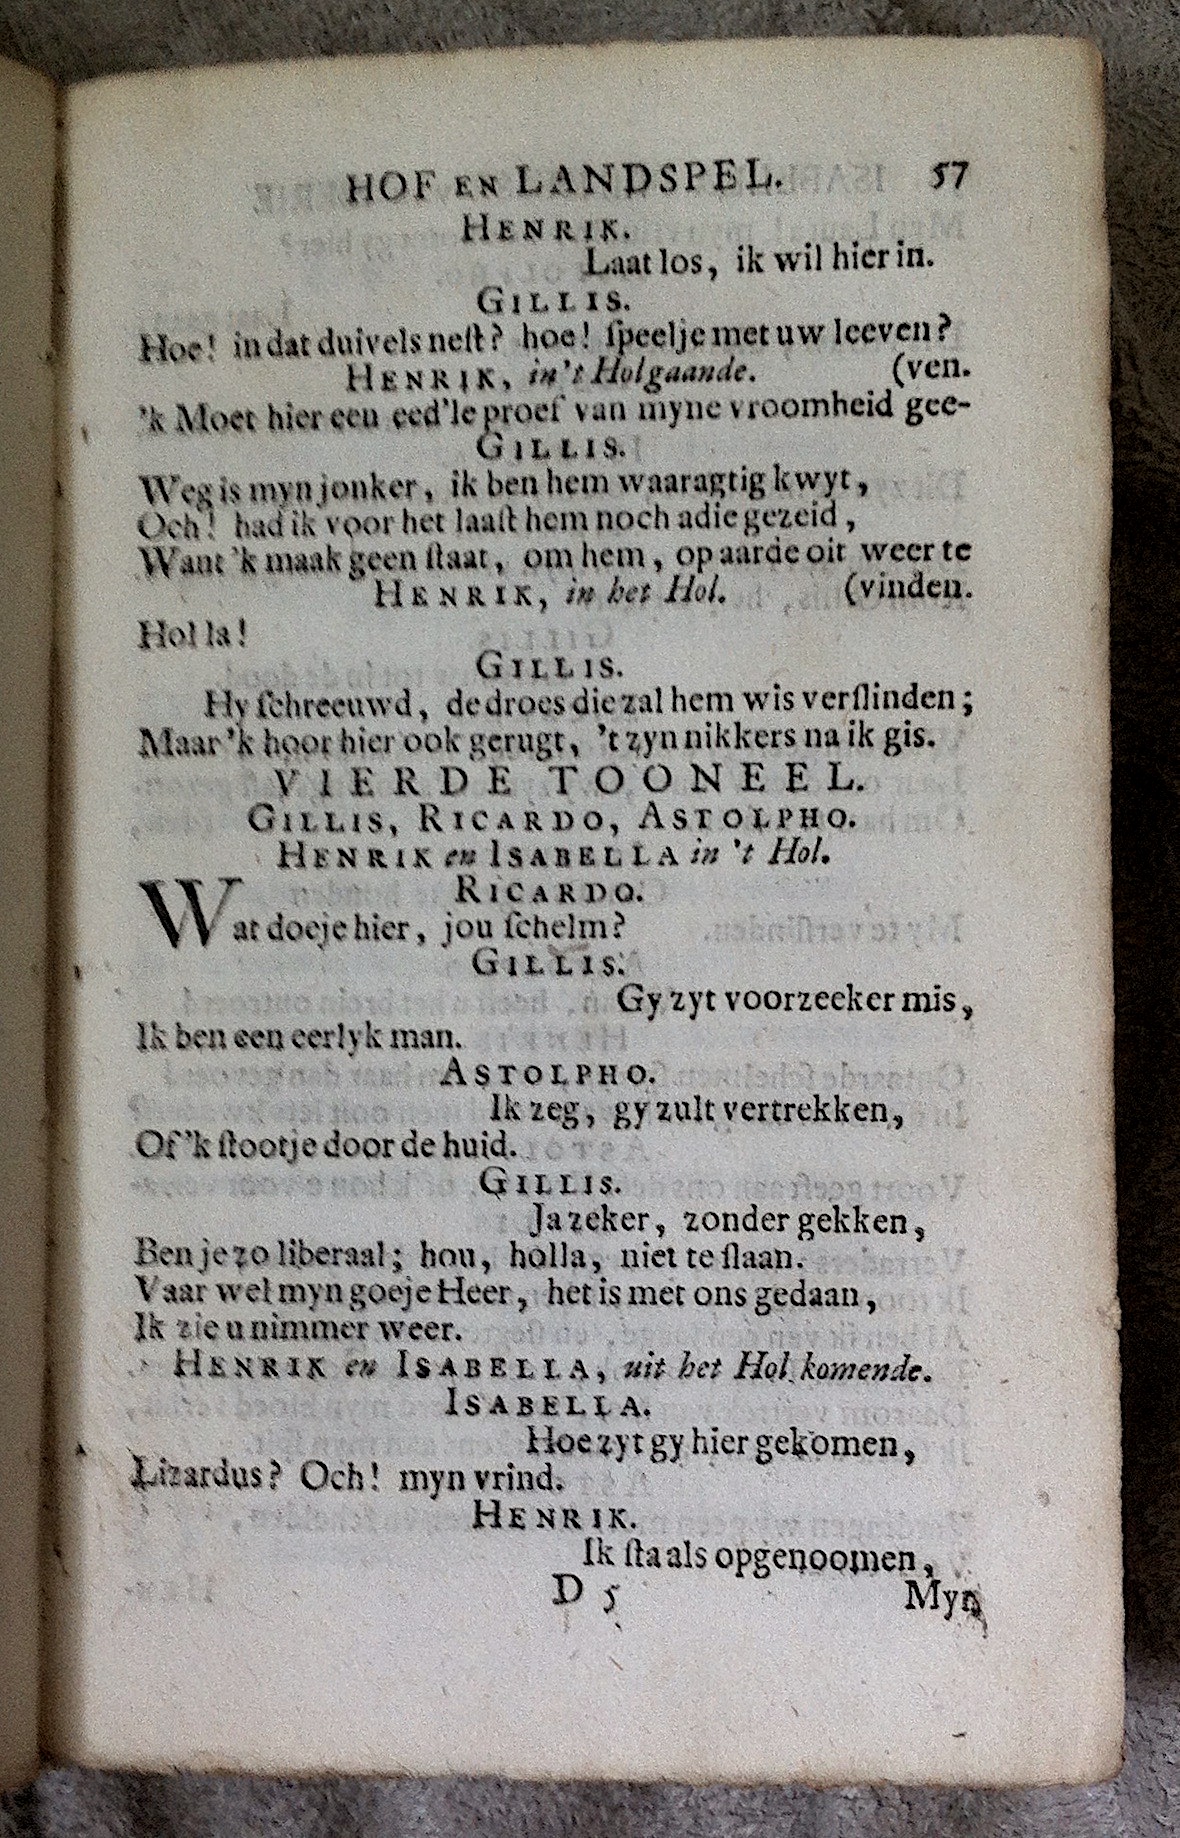 HOF EN LANDSPEL. 57
HENRIK.
Laat los, ik wil hier in.
GILLIS.
Hoe! in dat duivels neſt? hoe! ſpeelje met uw leeven?
HENRIK, in 't Holgaande. (ven.
'k Moet hier een eed'le proef van myne vroomheid gee-
GILLIS.
Weg is myn jonker, ik ben hem waaragtig kwyt,
Och! had ik voor het laaſt hem noch adie gezeid,
Want 'k maak geen ſtaat, om hem, op aarde oit weer te
HENRIK, in het Hol. (vinden.
Hol la!
GILLIS.
Hy ſchreeuwd, de droes die zal hem wis verſlinden;
Maar 'k hoor hier ook gerugt, 't zyn nikkers na ik gis.
VIERDE TOONEEL.
GILLIS, RICARDO, ASTOLPHO.
HENRIK en ISABELLA in 't Hol.
RICARDO.
Wat doeje hier, jou ſchelm?
GILLIS.
Gy zyt voorzeeker mis,
Ik ben een eerlyk man.
ASTOLPHO.
Ik zeg, gy zult vertrekken,
Of 'k ſtootje door de huid.
GILLIS.
Ja zeker, zonder gekken,
Ben je zo liberaal; hou, holla, niet te ſlaan.
Vaar wel myn goeje Heer, het is met ons gedaan,
Ik zie u nimmer weer.
HENRIK en ISABELLA, uit het Hol komende.
ISABELLA.
Hoe zyt gy hier gekomen,
Lizardus? Och! myn vrind.
HENRIK.
Ik ſta als opgenoomen,
D 5 Myn